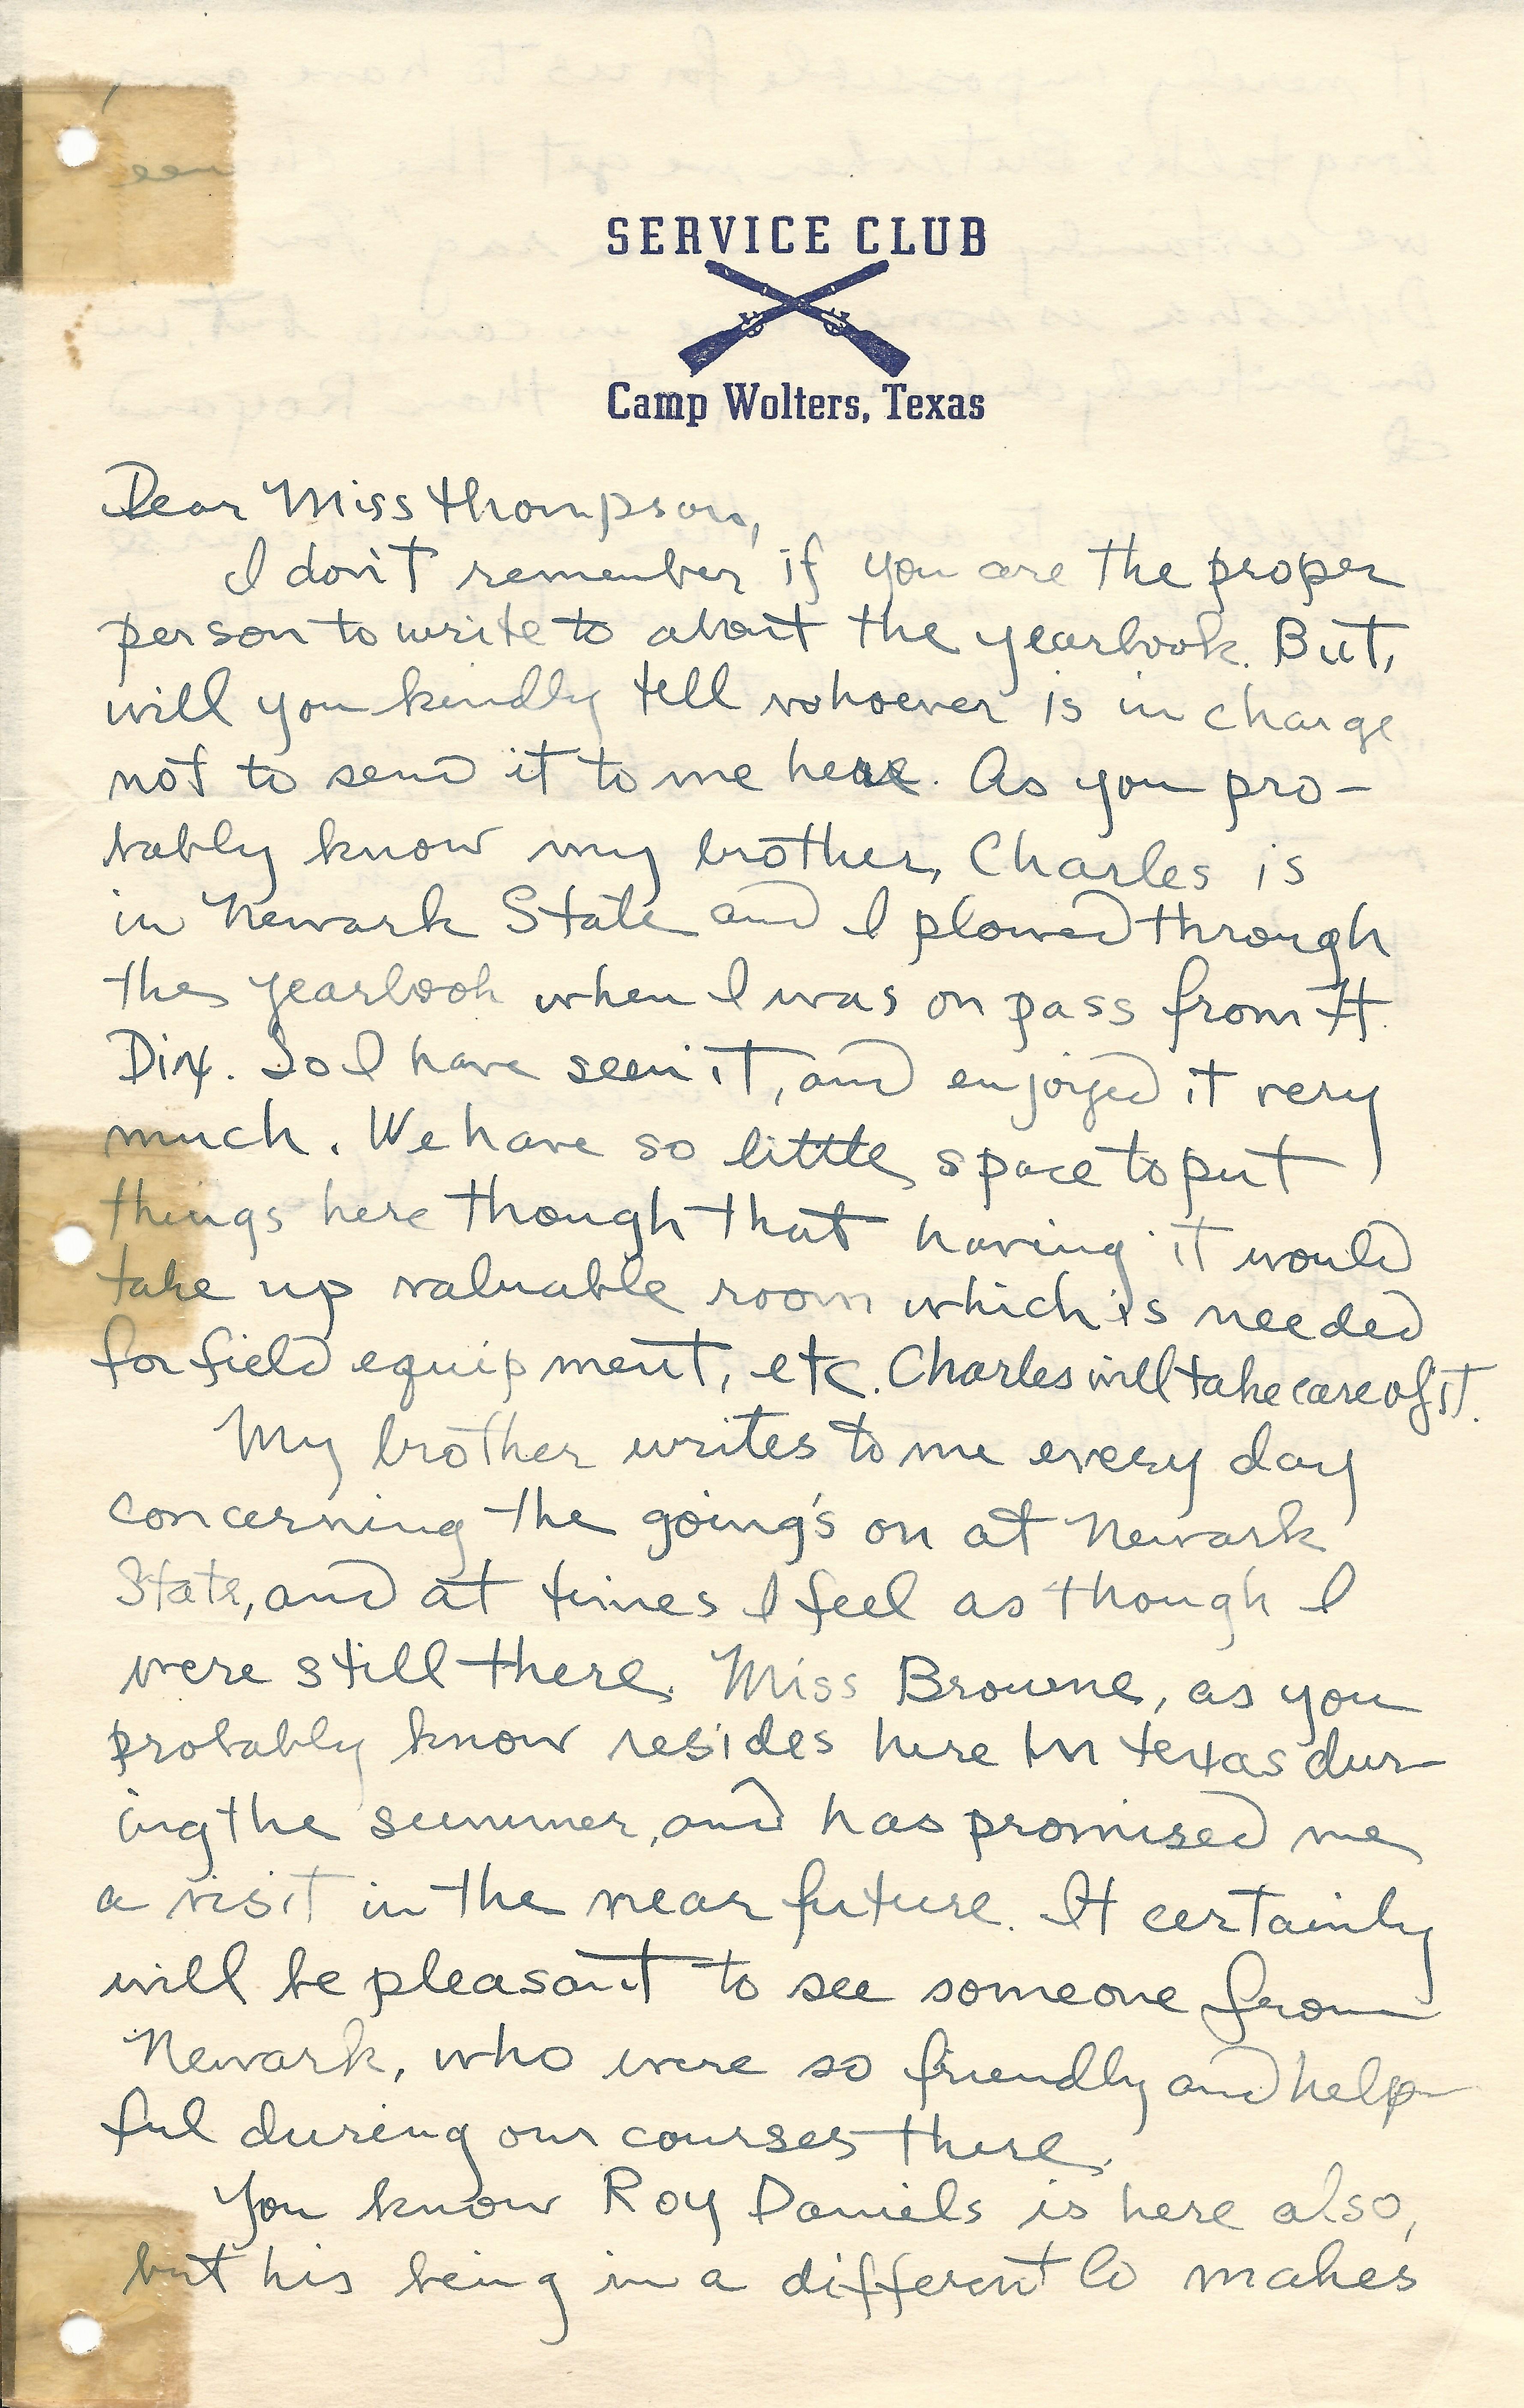 SERVICE CLUB
Camp Wolters, Texas
Dear Miss Thompson,
I don't remember if you are the proper
person to write to about the yearbook. But,
will you kindly tell whoever is in charge
not to send it to me here. As you pro-
bably know my brother, Charles is
in Newark State and I plowed through
the yearbook when I was on pass from Ft.
Dix. So I have seen it, and enjoyed it very
much. We have so little space to put
things here though that having it would
take up valuable room which is needed
for field equipment, etc. Charles will take care of it.
My brother writes to me every day
concerning the going's on at Newark
State, and at times I feel as though I
were still there. Miss Browne, as you
probably know resides here in Texas dur-
ing the summer, and has promised me
a visit in the near future. It certainly
will be pleasant to see someone from
Newark, who were so friendly and help-
ful during our courses there.
You know Roy Daniels is here also,
but his being in a different Co makes